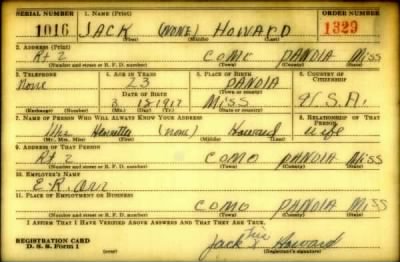 SERIAL NUMBER 1. NAME (Print) ORDER NUMBER
1016 JACK (NONE) HOWARD 1329
(First) (Middle) (Last)
2. ADDRESS (Print)
Rt 2 COMO PANOLA MISS
(Number and street or R. F. D. number) (Town) (County) (State)
3. TELEPHONE 4. AGE IN YEARS 5. PLACE OF BIRTH 6. COUNTRY OF CITIZENSHIP
None 23 PANOLA
(Town or county)
DATE OF BIRTH
3 18 1917 MISS U.S.A.
(Exchange) (Number) (Mo.) (Day) (Yr.) (State or country)
7. NAME OF PERSON WHO WILL ALWAYS KNOW YOUR ADDRESS 8. RELATIONSHIP OF THAT PERSON
Mrs Henrietta (none) Howard wife
(Mr., Mrs., Miss) (First) (Middle) (Last)
9. ADDRESS OF THAT PERSON
Rt 2 COMO PANOLA MISS
(Number and street or R. F. D. number) (Town) (County) (State)
10. EMPLOYER'S NAME
E. R. Orr
11. PLACE OF EMPLOYMENT OR BUSINESS
COMO PANOLA MISS
(Number and street or R. F. D. number) (Town) (County) (State)
I AFFIRM THAT I HAVE VERIFIED ABOVE ANSWERS AND THAT THEY ARE TRUE.
REGISTRATION CARD
D. S. S. Form 1
Jack his X Howard
(Registrant's signature)